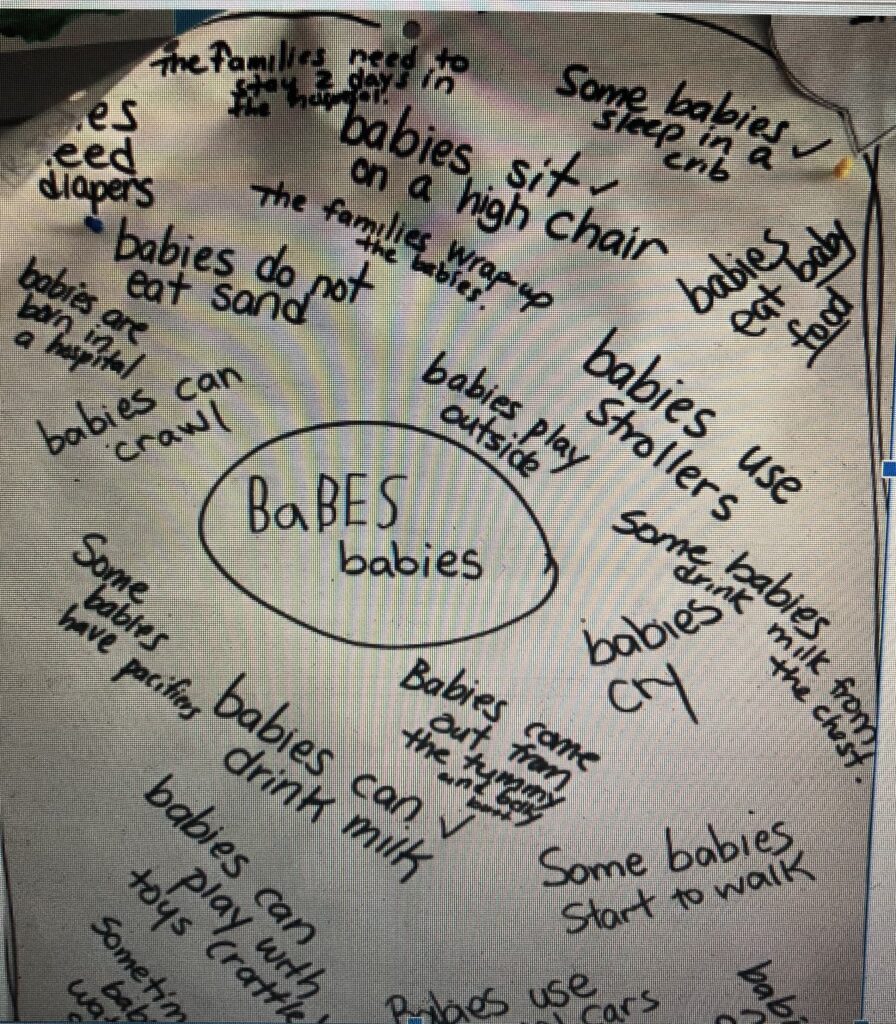 The Families need to
stay 2 days in
the hospital.
Some babies ✓
sleep in a
crib
es
eed
diapers
babies sit ✓
on a high chair
The families wrap up
the babies.
babies
eat baby
food
babies do not
eat sand
babies are
born in
a hospital
babies can
crawl
babies play
outside
babies use
strollers
BaBES
babies
some babies
drink milk from
the chest.
babies
cry
Some
babies
have
Babies come
out from
the tummy
and belly
babies can ✓
drink milk
babies can
play with
toys
Some babies
start to walk
Sometim
bab
wa
use
cars
bab